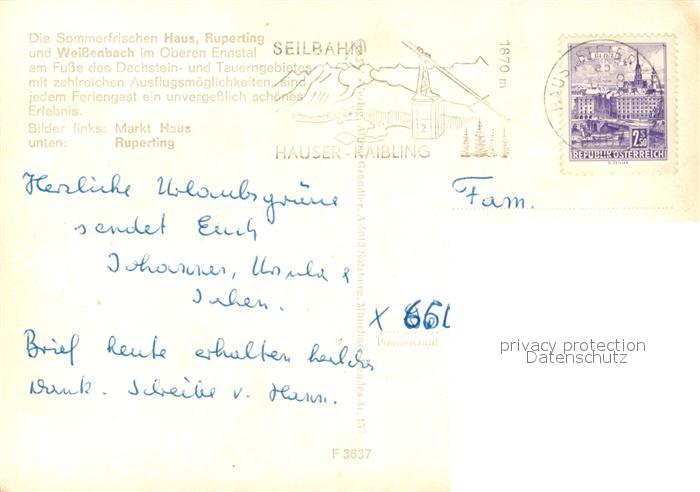 Die Sommerfrischen Haus, Ruperting
und Weißenbach im Oberen Ennstal
am Fuße des Dachstein- und Tauerngebietes
mit zahlreichen Ausflugsmöglichkeiten, sind
jedem Feriengast ein unvergeßlich schönes
Erlebnis.
Bilder links: Markt Haus
unten: Ruperting
SEILBAHN
1870 m
2
HAUSER-KAIBLING
2.50
REPUBLIK ÖSTERREICH
Herzliche Urlaubsgrüße
sendet Euch
Johannes, Ursula &
Fam.
x 651
Postleitzahl
Brief heute erhalten herzlichen
Dank. Schreibe v. Hann.
F 3637
privacy protection
Datenschutz